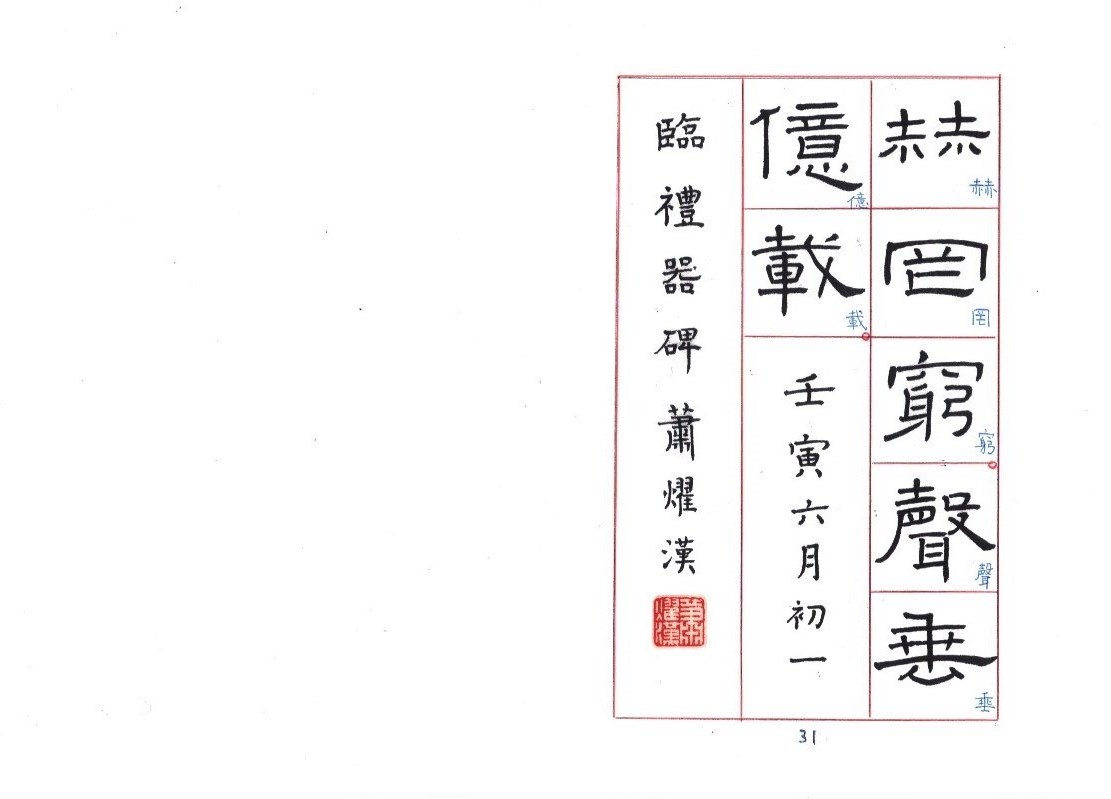 赫罔窮聲垂
赫
罔
窮
聲
垂
億載
億
載
壬寅六月初一
臨禮器碑蕭燿漢
蕭燿漢
31